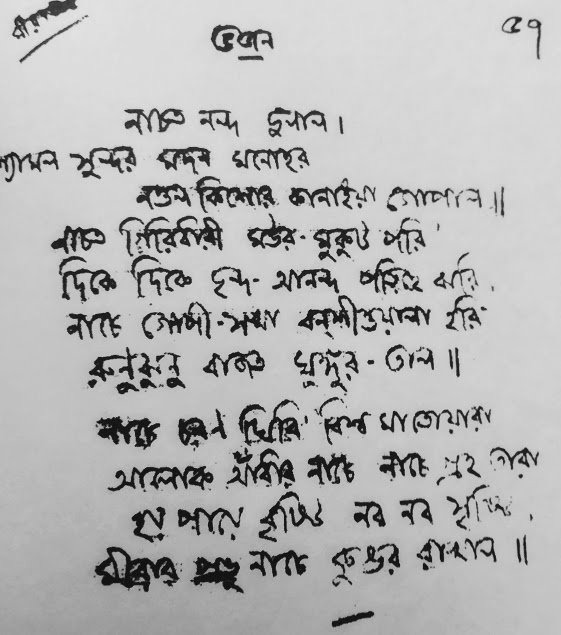 ভজন
৫৭
নাচত নন্দ দুলাল।
শ্যামল সুন্দর মদন মনোহর
নওল কিশোর কানাইয়া গোপাল॥
নাচত গিরিধারী মউর-মুকুট পরি
দিকে দিকে ছন্দ-আনন্দ পড়িছে ঝরি,
নাচে গোপী-সখা বন্শীওয়ালা হরি
রুনুঝুনু বাজত ঘুঙ্গুর-তাল॥
নাচে ঘিরি বিশ্ব মাতোয়ারা
আলোক আঁধার নাচে নাচে গ্রহ তারা
পায়ে নব নব সৃষ্টি,
মীরার প্রভু নাচে রাখাল॥